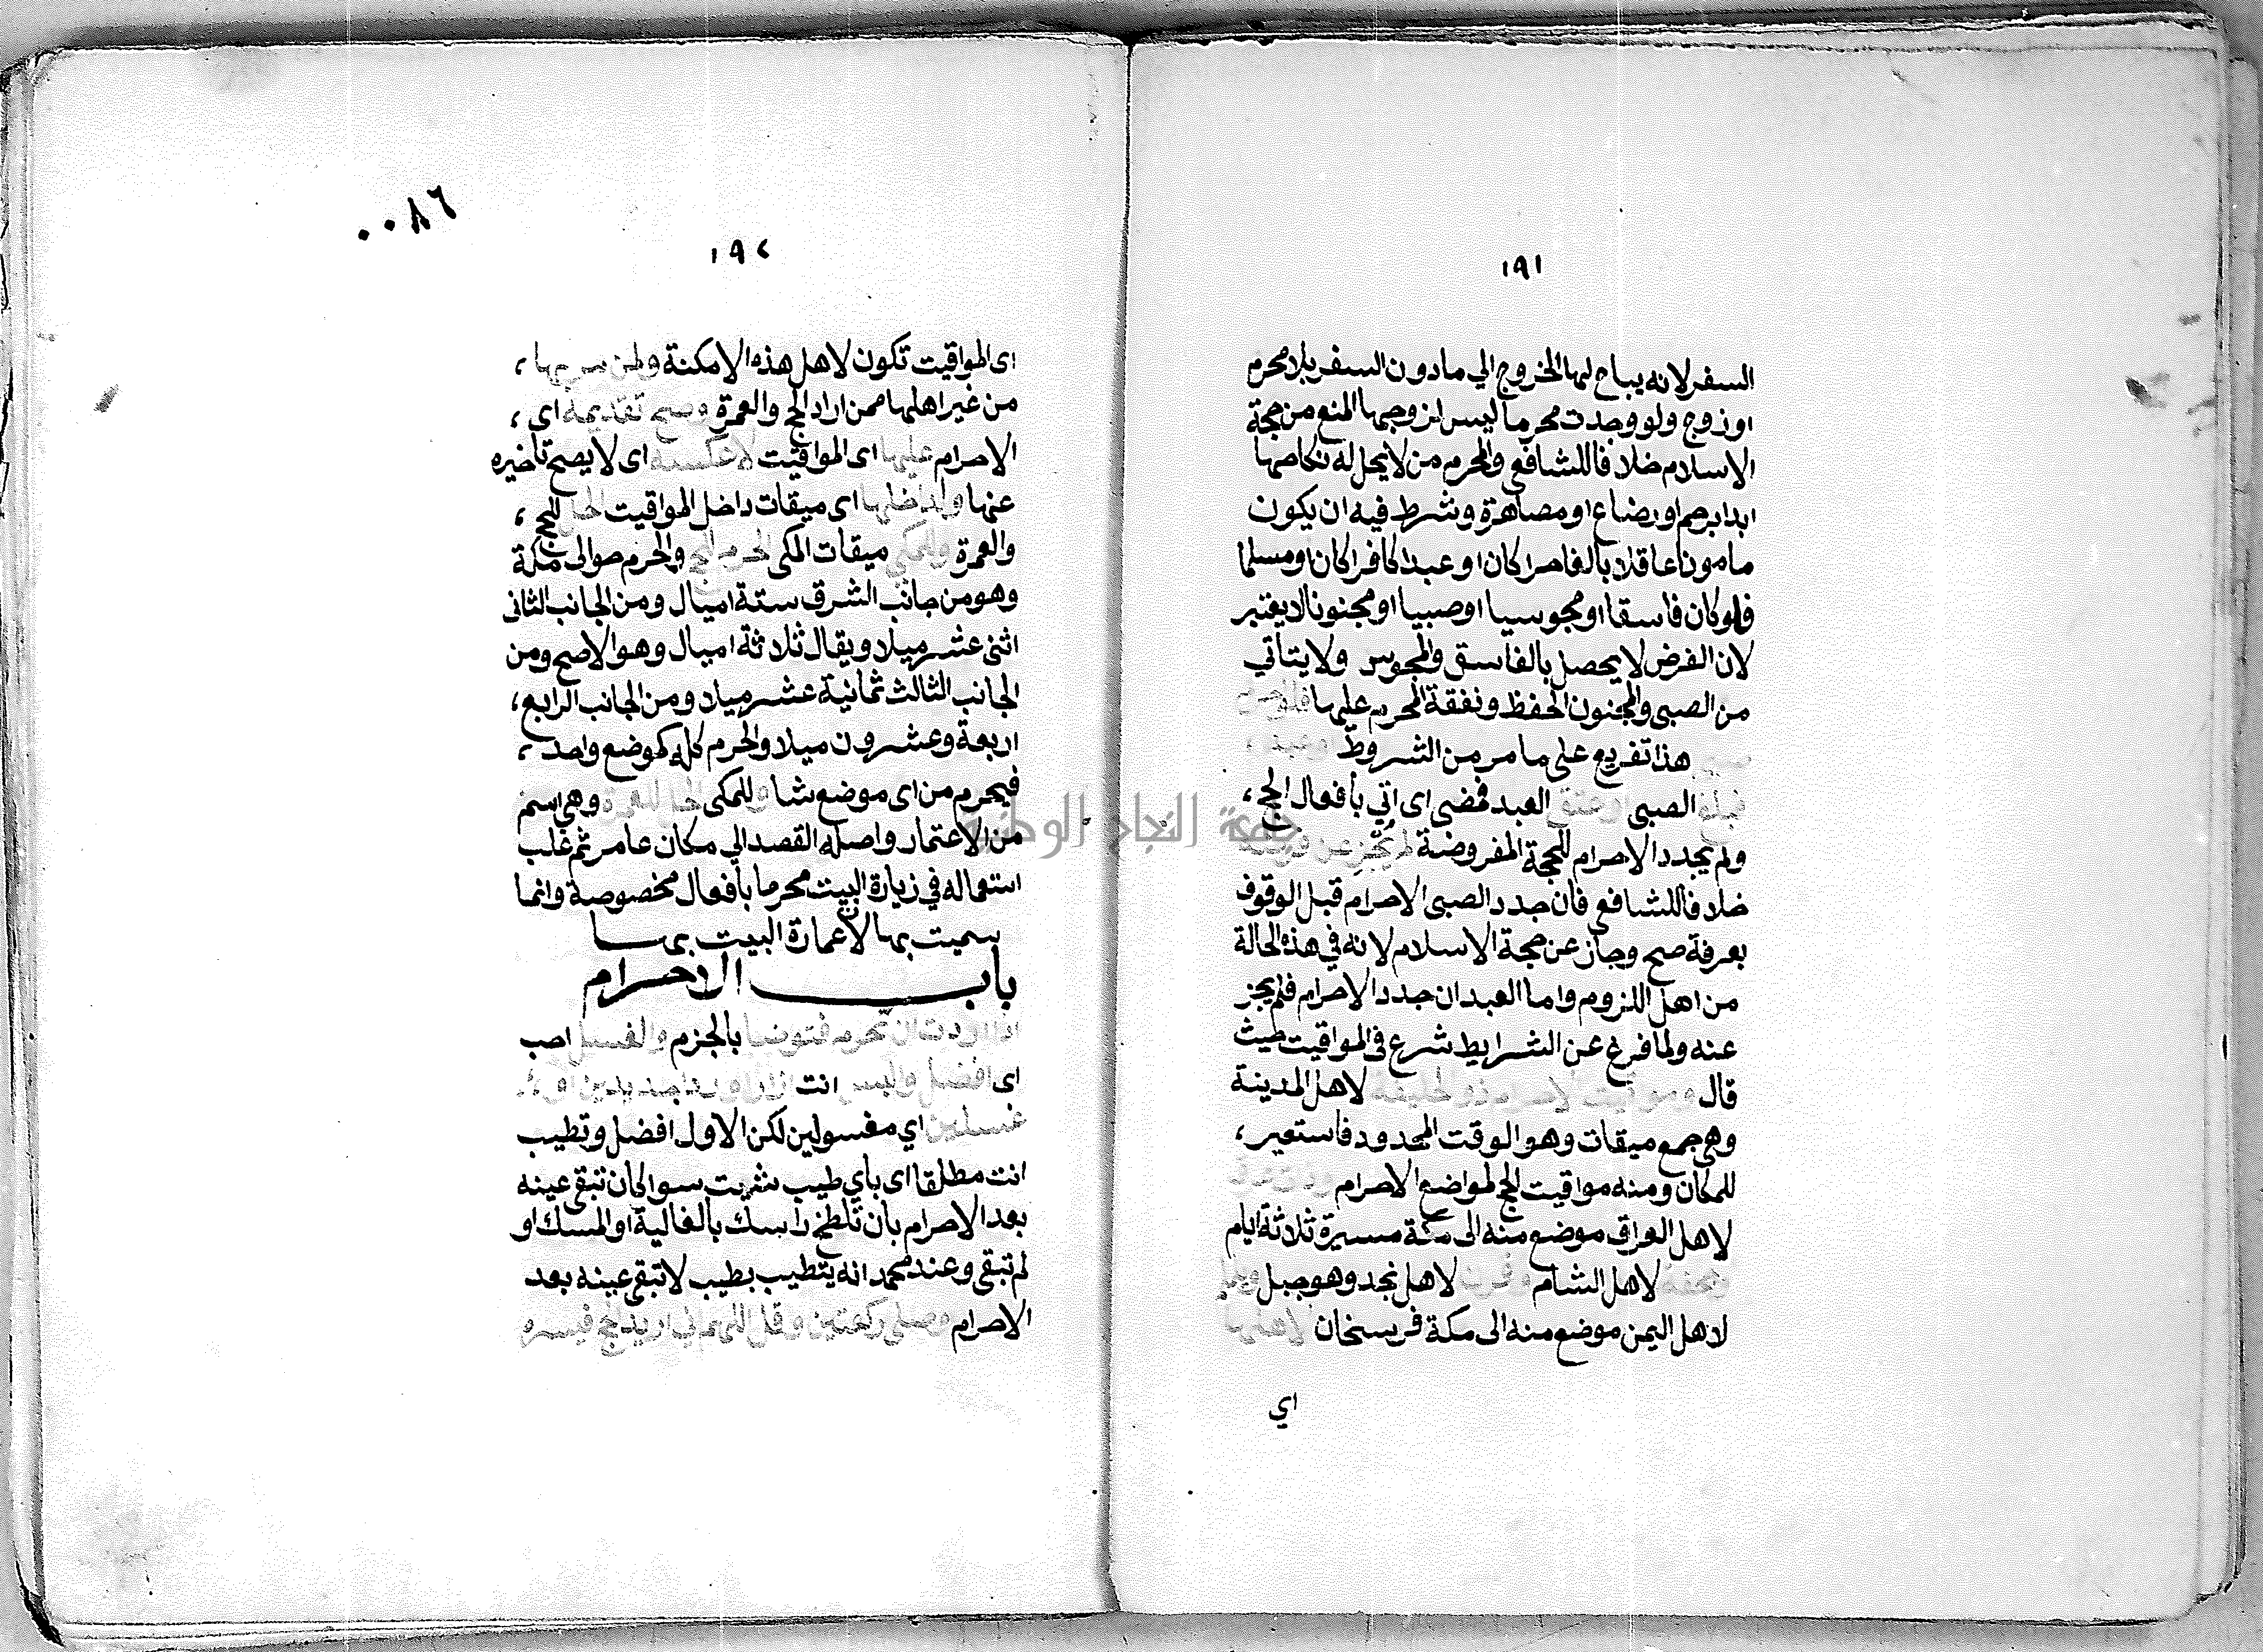 ١٩١
السفر لانه يباح لها الخروج الي مادون السفر بلا محرم
او زوج ولو وجدت محرما ليس لزوجها المنع من حجة
الاسلام خلافا للشافعي والمحرم من لا يحل له نكاحها
ابدا برحم او رضاع او مصاهرة وشرط فيه ان يكون
مامونا عاقلا بالغا حرا كان او عبدا كافرا كان او مسلما
فلو كان فاسقا او مجوسيا او صبيا او مجنونا لا يعتبر
لان الفرض لا يحصل بالفاسق والمجوس ولا يتاتي
من الصبي والمجنون الحفظ ونفقة المحرم عليها
هذا تفريع على ما مر من الشروط
الصبي او عتق العبد فمضى اى اتي بأفعال الحج ،
ولم يجدد الاحرام للحجة المفروضة لم يجز عن فرضه
خلافا للشافعي فان جدد الصبى الاحرام قبل الوقوف
بعرفة صح وجاز عن حجة الاسلام لانه في هذه الحالة
من اهل اللزوم واما العبد ان جدد الاحرام فلم يجز
عنه ولما فرغ عن الشرايط شرع في المواقيت حيث
قال ومواقيت الاحرام ذو الحليفة لاهل المدينة
وهي جمع ميقات وهو الوقت المحدود فاستعير ،
للمكان ومنه مواقيت الحج لمواضع الاحرام
لاهل العراق موضع منه الى مكة مسيرة ثلاثة ايام
لاهل الشام وقرن لاهل نجد وهو جبل
لاهل اليمن موضع منه الى مكة فرسخان
اي
٠٠٨٦
١٩٢
اى المواقيت تكون لاهل هذه الامكنة ولمن مر بها ،
من غير اهلها ممن اراد الحج والعمرة وصح تقديمه اى ،
الاحرام عليها اى المواقيت لا عكسه اى لا يصح تاخيره
عنها ولداخلها اى ميقات داخل المواقيت الحل للحج ،
والعمرة وللمكي ميقات المكى الحرم للحج والحرم حوالى مكة
وهو من جانب الشرق ستة اميال ومن الجانب الثانى
اثنى عشر ميلا ويقال ثلاثة اميال وهو الاصح ومن
الجانب الثالث ثمانية عشر ميلا ومن الجانب الرابع ،
اربعة وعشرون ميلا والحرم كله كموضع واحد ،
فيحرم من اى موضع شا وللمكى الحل للعمرة وهي اسم
من الاعتمار واصله القصد الي مكان عامر ثم غلب
استعماله في زيارة البيت محرما بأفعال مخصوصة وانما
سميت بها لان عمارة البيت بها
باب الاحرام
اذا اردت ان تحرم فتوضا بالجزم والغسل احب
اى افضل والبس انت ازارا ورداء جديدين او ،
غسلين اي مغسولين لكن الاول افضل وتطيب
انت مطلقا اى باي طيب شيت سوا كان تبقى عينه
بعد الاحرام بان تلطخ راسك بالغالية او المسك او
لم تبقى وعند محمد انه يتطيب بطيب لا تبقى عينه بعد
الاحرام وصلى ركعتين وقل اللهم اني اريد الحج فيسره
جامعة النجاح الوطنية